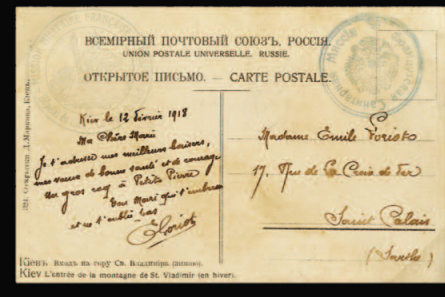 ВСЕМІРНЫЙ ПОЧТОВЫЙ СОЮЗЪ. РОССІЯ.
UNION POSTALE UNIVERSELLE. RUSSIE.
ОТКРЫТОЕ ПИСЬМО. — CARTE POSTALE.
Kiev le 12 Février 1918
Ma Chère Marie
Je t'adresse mes meilleurs baisers,
mes vœux de bonne santé et de courage
un gros à Petite Pierre
Ton Mari qui t'embrasse
et ne t'oublie pas
Madame Emile
17, Rue de La Croix de Fer
Saint Palais
Кіевъ. Входъ на гору Св. Владиміра (зимою).
Kiev L'entrée de la montagne de St. Vladimir (en hiver).